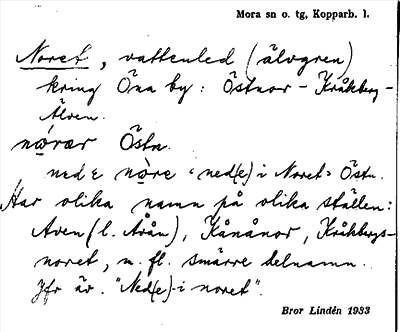 Mora sn o. tg, Kopparb. l.
Noret, vattenled (älvgren)
kring Öna by: Östnor – Kråkberg –
Älven.
nọ́rær Östn.
ned e nọ̀re "ned(e) i Noret" Östn.
Har olika namn på olika ställen:
Aven (l. Avån), Kånånor, Kråkbergs-
noret, m. fl. smärre delnamn.
Jfr äv. "Ned(e)-i noret".
Bror Lindén 1933